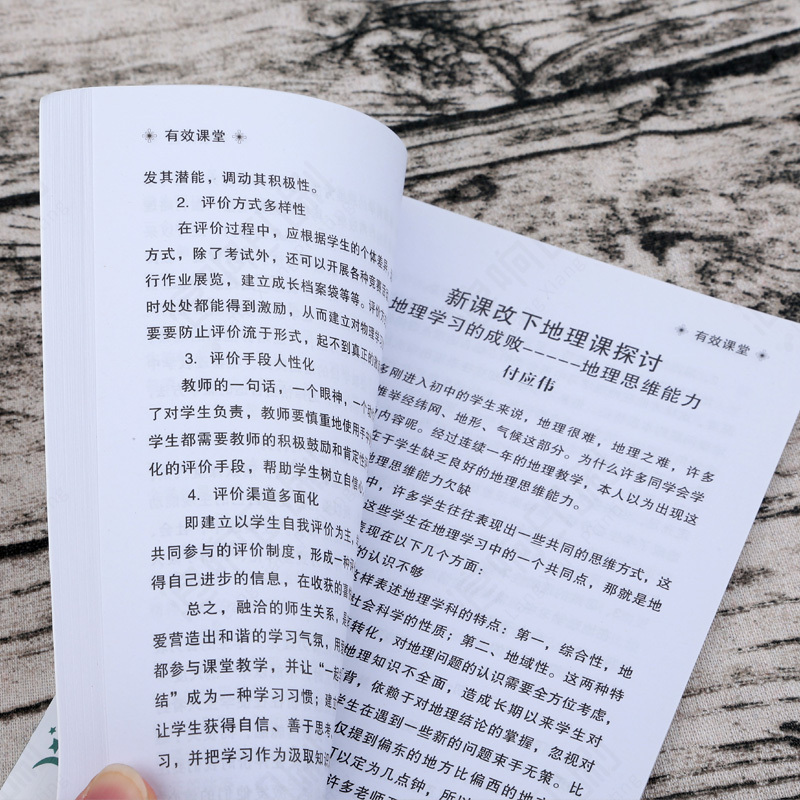 有效课堂
发其潜能，调动其积极性。
2. 评价方式多样性
在评价过程中，应根据学生的个体差异，
方式，除了考试外，还可以开展各种竞赛活
行作业展览，建立成长档案袋等等。评价方
时处处都能得到激励，从而建立对物理学习
要要防止评价流于形式，起不到真正的
3. 评价手段人性化
教师的一句话，一个眼神，一个
了对学生负责，教师要慎重地使用手
学生都需要教师的积极鼓励和肯定性
化的评价手段，帮助学生树立自信心
4. 评价渠道多面化
即建立以学生自我评价为主，
共同参与的评价制度，形成一种
得自己进步的信息，在收获的喜
总之，融洽的师生关系，是
爱营造出和谐的学习气氛，用
都参与课堂教学，并让“一起
结”成为一种学习习惯；建立
让学生获得自信、善于思考
习，并把学习作为汲取知识
有效课堂
新课改下地理课探讨
地理学习的成败-----地理思维能力
付应伟
多刚进入初中的学生来说，地理很难，地理之难，许多
推举经纬网、地形、气候这部分。为什么许多同学会学
内容呢。经过连续一年的地理教学，本人以为出现这
在于学生缺乏良好的地理思维能力。
地理思维能力欠缺
中，许多学生往往表现出一些共同的思维方式，这
这些学生在地理学习中的一个共同点，那就是地
表现在以下几个方面：
的认识不够
这样表述地理学科的特点：第一，综合性，地
社会科学的性质；第二、地域性。这两种特
转化，对地理问题的认识需要全方位考虑，
地理知识不全面，造成长期以来学生对
背，依赖于对地理结论的掌握，忽视对
学生在遇到一些新的问题束手无策。比
仅提到偏东的地方比偏西的地方
可以定为几点钟，所以
许多老师